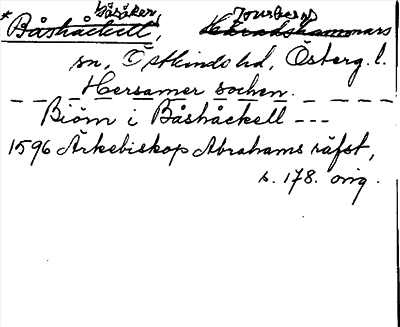 Båsåker,
* Båshåckell, Häradshammars
sn, Östkinds hd, Österg. l.
Hersamer socken.
Biörn i Båshåckell ---
1596 Ärkebiskop Abrahams räfst,
s. 178. orig.